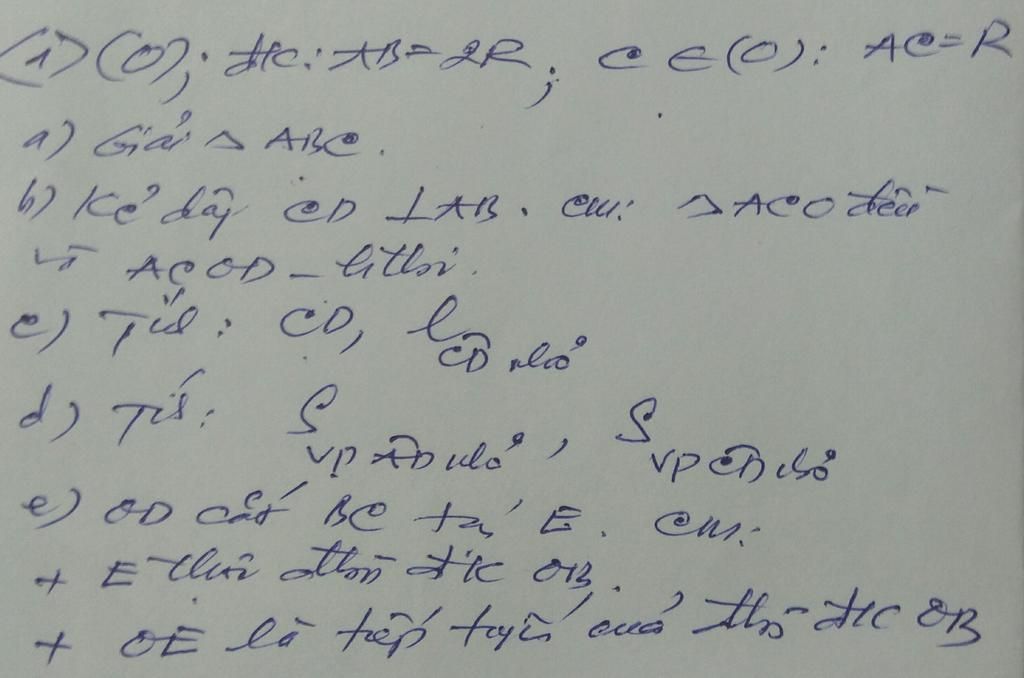 (1) (O); đk: AB = 2R; C ∈ (O): AC = R
a) Giải △ ABC.
b) Kẻ dây CD ⊥ AB. cm: △ ACO đều
và ACOD - h thoi.
c) Tính: CD, l CD nhỏ
d) Tính: S vp AD nhỏ, S vp CB nhỏ
e) OD cắt BC tại E. cm:
+ E thuộc đtròn đk OB.
+ OE là tiếp tuyến của đtrò đk OB